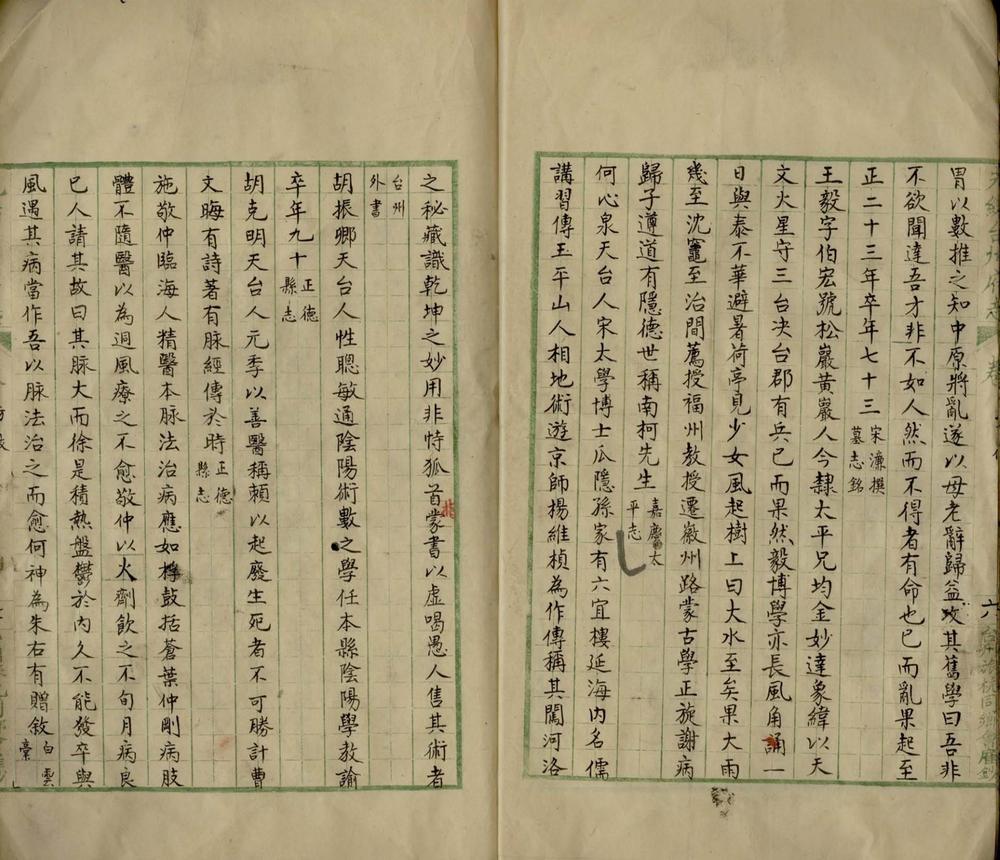 胃以數推之知中原將亂遂以母老辭歸益攻其舊學曰吾非
不欲聞達吾才非不如人然而不得者有命也已而亂果起至
正二十三年卒年七十三宋濂撰墓志銘
王毅字伯宏號松巖黃巖人今隸太平兄均金妙達象緯以天
文火星守三台決台郡有兵已而果然毅博學亦長風角誦一
日與泰不華避暑荷亭見少女風起樹上曰大水至矣果大雨
幾至沈竈至治間薦授福州教授遷徽州路蒙古學正旋謝病
歸子遵道有隱德世稱南柯先生嘉慶太平志
何心泉天台人宋太學博士瓜隱孫家有六宜樓延海內名儒
講習傳王平山人相地術遊京師楊維楨為作傳稱其闖河洛
之秘藏識乾坤之妙用非恃狐首蒙書以虛喝愚人售其術者
台州外書
胡振卿天台人性聰敏通陰陽術數之學任本縣陰陽學教諭
卒年九十正德縣志
胡克明天台人元季以善醫稱賴以起廢生死者不可勝計曹
文晦有詩著有脉經傳於時正德縣志
施敬仲臨海人精醫本脉法治病應如桴鼓括蒼葉仲剛病肢
體不隨醫以為洞風療之不愈敬仲以火劑飲之不旬月病良
已人請其故曰其脉大而徐是積熱盤鬱於內久不能發卒與
風遇其病當作吾以脉法治之而愈何神為朱右有贈敘白雲稾
六